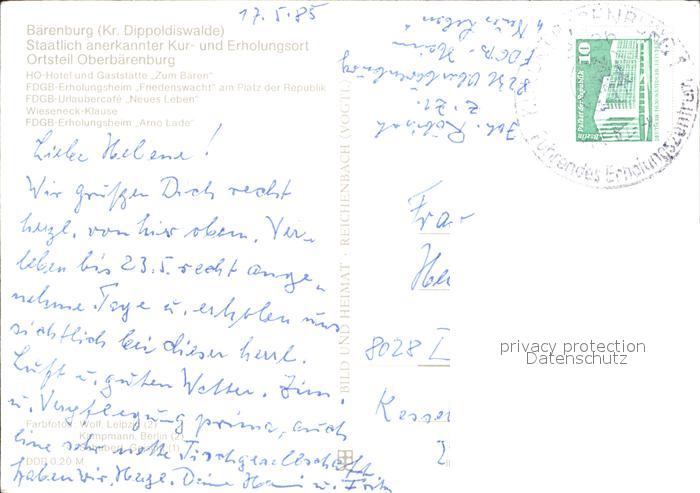 17.5.85
Bärenburg (Kr. Dippoldiswalde)
Staatlich anerkannter Kur- und Erholungsort
Ortsteil Oberbärenburg
HO-Hotel und Gaststätte „Zum Bären"
FDGB-Erholungsheim „Friedenswacht" am Platz der Republik
FDGB-Urlaubercafé „Neues Leben"
Wieseneck-Klause
FDGB-Erholungsheim „Arno Lade"
Liebe Helene!
Wir grüßen Dich recht
herzl. von hier oben. Ver-
leben bis 23.5. recht ange-
nehme Tage u. erholen uns
sichtlich bei dieser herrl.
Luft u. guten Wetter. Zim.
u. Verpflegung prima, auch
eine sehr nette Tischgesellschaft
haben wir. Herzl. Deine u. Fritz
Farbfotos: Wolf, Leipzig (2)
Kampmann, Berlin (2)
DDR 0,20 M
BILD UND HEIMAT · REICHENBACH (VOGTL)
Joh.
z. Zt.
8231 Oberbärenburg
FDGB-Heim
"Neues Leben"
10
Palast der Republik
Berlin
führendes Erholungszentrum
Frau
8028
privacy protection
Datenschutz